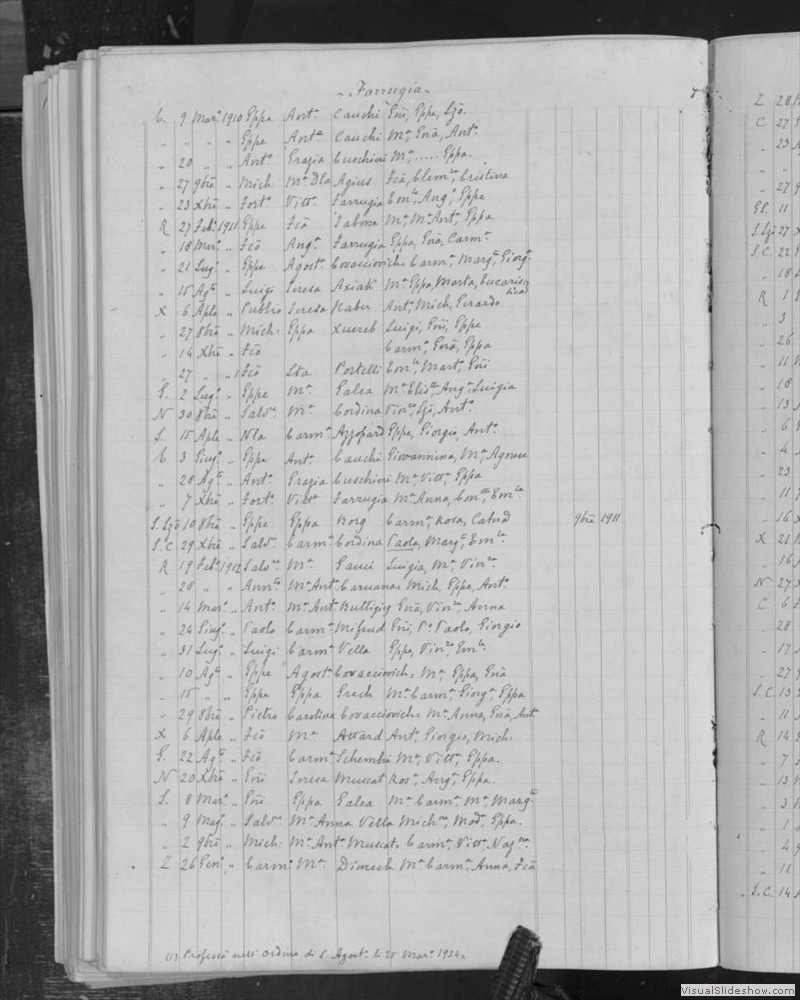 Farrugia
C. 9 Mar.º 1910 Eppe Ant.ª Cauchi Gñi, Eppe, Sjō.
„ „ „ „ Eppe Ant.ª Cauchi M.ª Gnā, Ant.º
„ 20 „ „ Ant.º Grazia Cuschieri M.ª, ..... Eppa.
„ 27 9bre „ Mich. M.ª Dla Agius Fcā, Clem.ª, Cristina
„ 23 Xbre „ Fort.º Vitt.ª Farrugia Em.la, Ang.º Eppe
R 27 Feb.º 1911 Eppe Fcā Sabona M.ª M.ª Ant.ª, Eppa
„ 18 Mar.º „ Fcō Ang.ª Farrugia Eppa, Gnā, Carm.ª
„ 21 Lug.º „ Eppe Agost.ª Covacciovich. Carm.ª, Marg.ª Giorg.ª
„ 15 Ag.º „ Luigi Teresa Axiak M.ª Eppa, Marta, Eucaris
tica
X 6 Aple „ Publio Teresa Naber Ant.º, Mich, Gerardo
„ 27 8bre „ Mich. Eppa Xuereb Luigi, Gñi, Eppe
„ 14 Xbre „ Fcō Carm.ª, Gnā, Eppa
„ 27 „ „ 1 Fcō Lta Portelli Em.la, Mart.ª, Gñi
G. 2 Lug.º „ Eppe M.ª Galea M.ª Elis.ta, Ang.ª Luigia
N 30 8bre „ Salv.re M.ª Cordina Vin.zo, Sjō, Ant.º
S. 15 Aple „ Nla Carm.ª Azzopard Eppe, Giorgio, Ant.º
C 3 Giug.º „ Eppe Ant.ª Cauchi Giovannina, M.ª, Agnese
„ 28 Ag.º „ Ant.º Grazia Cuschieri M.ª Vitt.ª, Eppa
„ 7 Xbre „ Fort.º Vitt.ª Farrugia M.ª Anna, Con.tta, Em.la
S. Sjō 10 8bre „ Eppe Eppa Borg Carm.ª, Rosa, Catrid 9bre 1911
S.C 29 Xbre „ Salv.re Carm.ª Cordina Paola, Marg.ª, Em.la
R 19 Feb.º 1912 Salv.re M.ª Gauci Luigia, M.ª, Vin.za
„ 28 „ „ Ann.to M.ª Ant.ª Caruana Mich, Eppe, Ant.º
„ 14 Mar.º „ Ant.º M.ª Ant.ª Buttigig Gnā, Vin.za, Anna
„ 24 Giug.º „ Paolo Carm.ª Mifsud Gñi, P.º Paolo, Giorgio
„ 31 Lug.º „ Luigi Carm.ª Vella Eppe, Vin.zo, Em.le
„ 10 Ag.º „ Eppe Agost.ª Covacciovich. M.ª, Eppa, Gnā
„ 15 „ „ Eppe Eppa Grech M.ª Carm.ª, Giorg.ª, Eppa
„ 29 8bre „ Pietro Carolina Covacciovich. M.ª Anna, Gnā, Ant.ª
X 6 Aple „ Fcō M.ª Attard Ant.º, Giorgio, Mich.
G. 22 Ag.º „ Fcō Carm.ª Schembri M.ª, Vitt.ª, Eppa.
N 20 Xbre „ Gñi Teresa Muscat Ros.ª, Ang.ª, Eppa.
S. 8 Mar.º „ Gñi Eppa Galea M.ª Carm.ª, M.ª, Marg.ª
„ 9 Mag.º „ Salv.re M.ª Anna Vella Mich.na, Mod.ª, Eppa.
„ 2 9bre „ Mich. M.ª Ant.ª Muscat. Carm.ª, Vitt.ª, Naz.na
Z 26 Gen.º „ Carm.º M.ª Dimech M.ª Carm.ª, Anna, Fcā
(1) Professò nell' ordine di S. Agost.º li 25 Mar.º 1934.
Z 28
C 27
23
27
GS. 11
S. Sjō 27
S.C. 22
18
R 1
3
26
11
18
13
6
4
23
11
16
X 21
16
N 27
C 6
28
17
27
S.C 13
11
R 14
7
13
3
1
4
11
S.C 14
VisualSlideshow.com